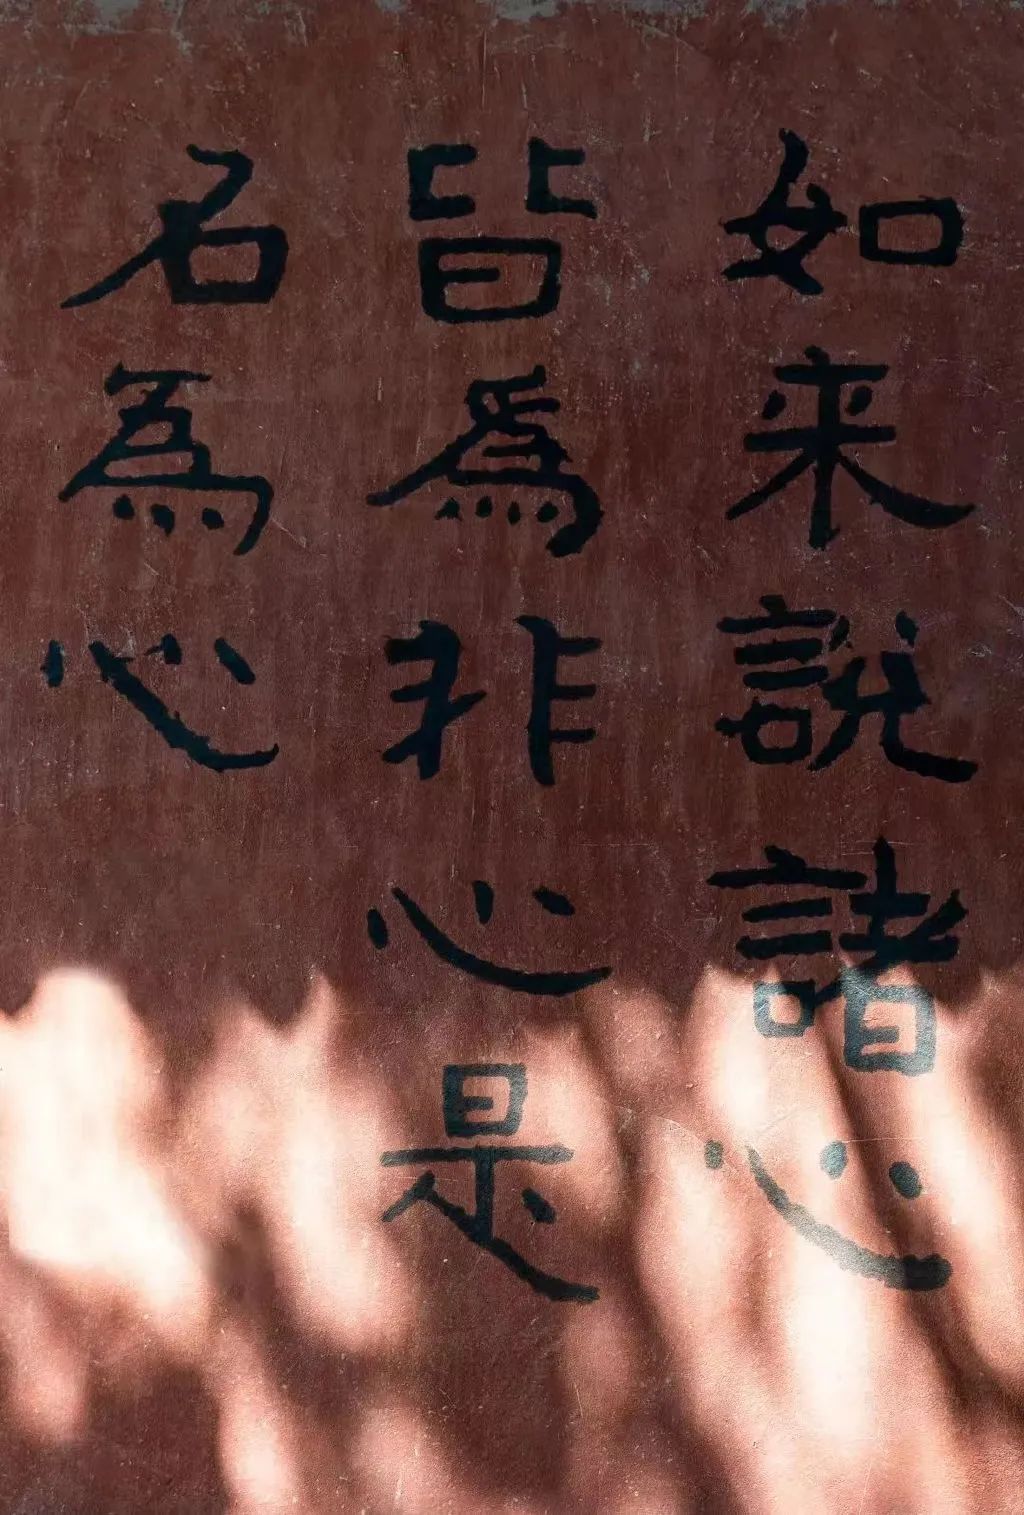 如来説諸心
皆爲非心是
名為心